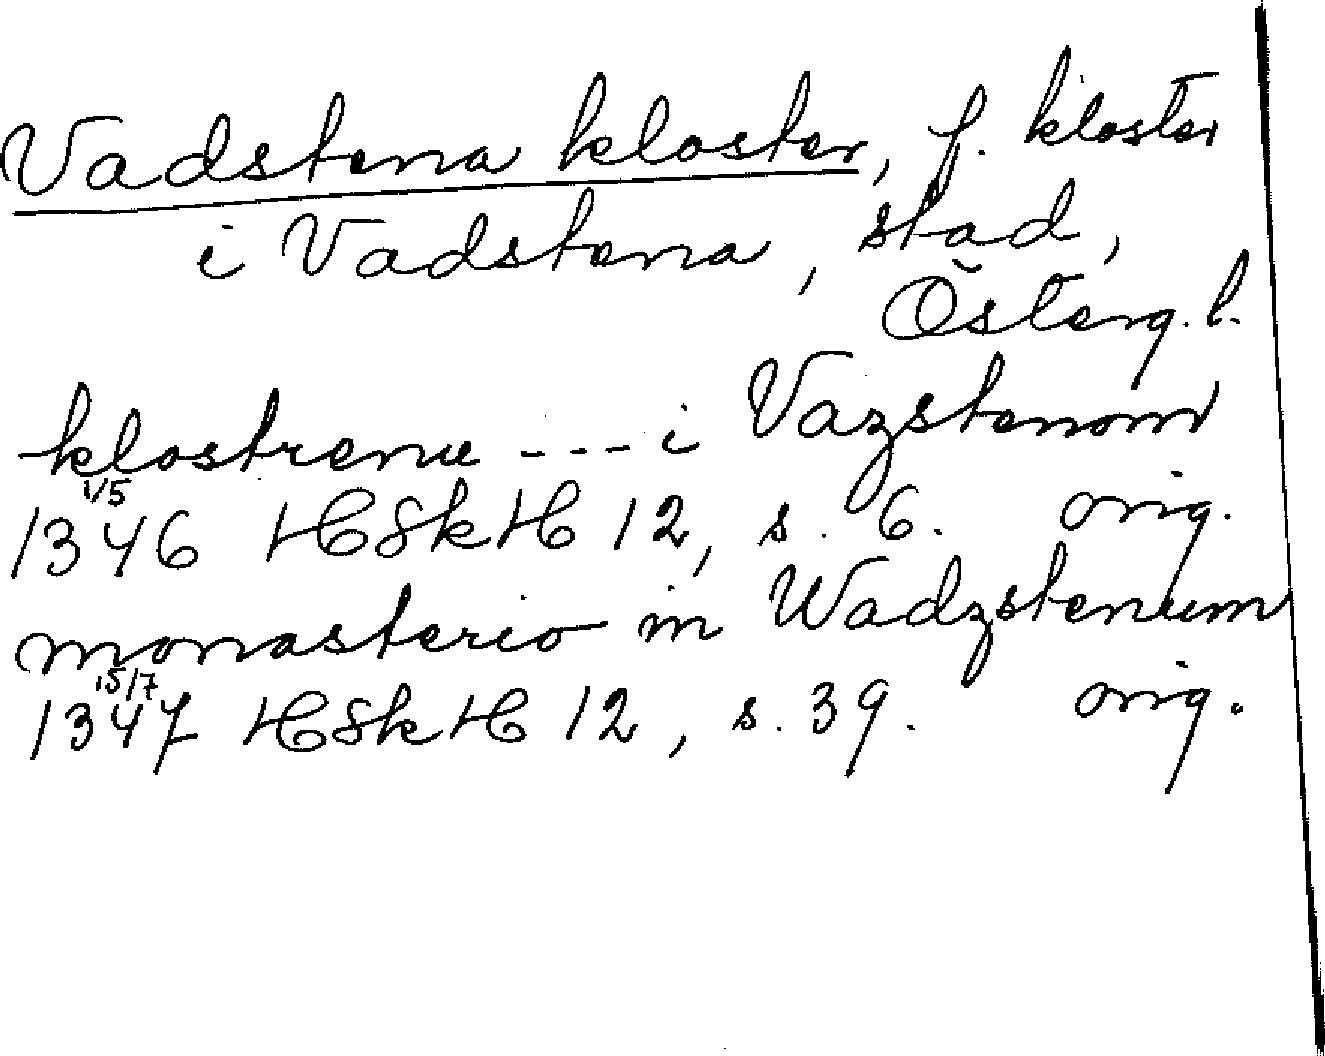 Vadstena kloster, f. kloster
i Vadstena, stad,
Österg. l.
klostrenu - - - i Vazstenom
1/5
1346 HSkH 12, s. 6. orig.
monasterio in Wadzstenum
15/7
1347 HSkH 12, s. 39. orig.